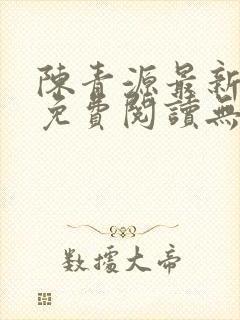 陳青源最新
免費閱讀無
數據大帝